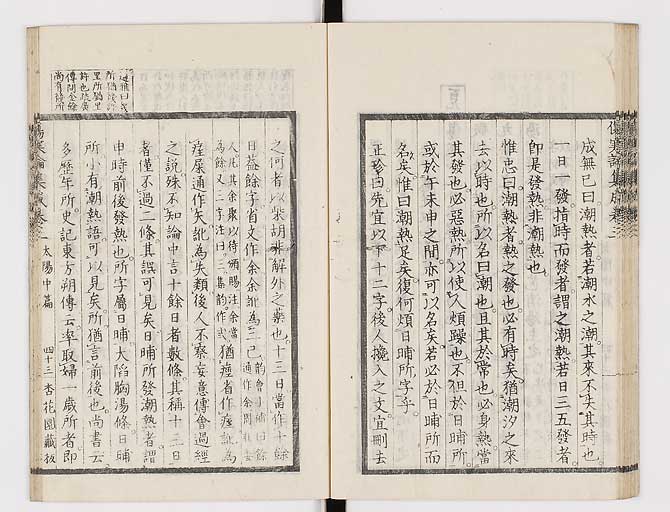 成無己曰潮熱者若潮水之潮其來不失其時也
一日一發指時而發者謂之潮熱若日三五發者
即是發熱非潮熱也
惟忠曰潮熱者熱之發也必有時矣猶潮汐之來
去以時也所以名曰潮也且其於常也必身熱當
其發也必惡熱所以使人煩躁也不但於日晡所
或於午未申之間亦可以名矣若必於日晡所而
名矣惟曰潮熱足矣復何煩日晡所字乎
正珍曰先宜以下十二字後人攙入之文宜刪去
之何者以柴胡非解外之藥也十三日當作十餘
日蓋餘字省文作余余訛為三已
痓屎通作矢訛為失類後人不察妄意傅會過經
之說殊不知論中言十餘日者數條其稱十三日
者僅不過二條其誤可見矣日晡所發潮熱者謂
申時前後發熱也所字屬日晡大陷胸湯條日晡
所小有潮熱語可以見矣所猶言前後也尚書云
多歷年所史記東方朔傳云率取婦一歲所者即
太陽中篇
四十三
杏花園藏板